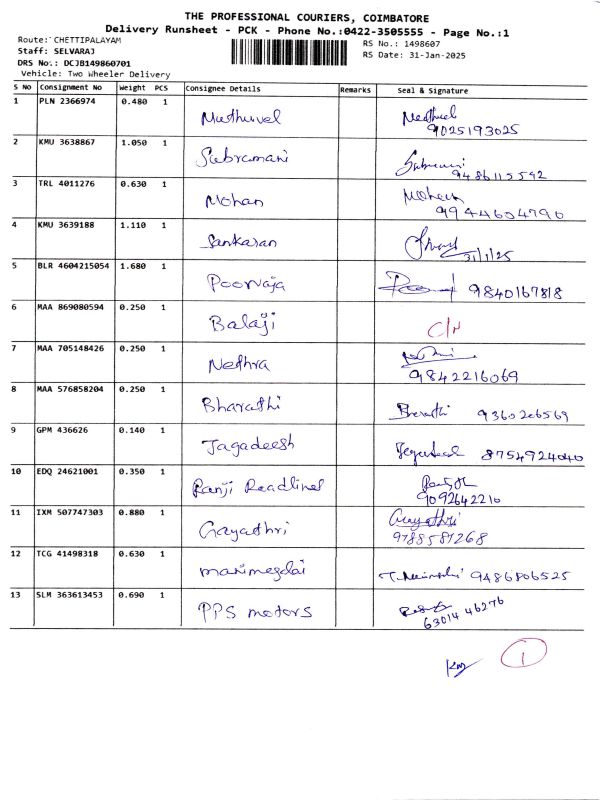 THE PROFESSIONAL COURIERS, COIMBATORE
Delivery Runsheet - PCK - Phone No.:0422-3505555 - Page No.:1
Route: CHETTIPALAYAM RS No.: 1498607
Staff: SELVARAJ RS Date: 31-Jan-2025
DRS No.: DCJB149860701
Vehicle: Two Wheeler Delivery
S No Consignment No Weight PCS Consignee Details Remarks Seal & Signature
1 PLN 2366974 0.480 1 Muthuvel
9025193025
2 KMU 3638867 1.050 1 Subramani
9486115592
3 TRL 4011276 0.630 1 Mohan Mohan
9944604790
4 KMU 3639188 1.110 1 Sankaran
31/1/25
5 BLR 4604215054 1.680 1 Poorvaja 9840167818
6 MAA 869080594 0.250 1 Balaji C/N
7 MAA 705148426 0.250 1 Nethra
9842216069
8 MAA 576858204 0.250 1 Bharathi Bharathi 9360206569
9 GPM 436626 0.140 1 Jagadeesh 8754924040
10 EDQ 24621001 0.350 1 Ranji Readlines
9092642210
11 IXM 507747303 0.880 1 Gayathri Gayathri
9788587268
12 TCG 41498318 0.630 1 manimegdai 9486806525
13 SLM 363613453 0.690 1 PPS motors
63014 46276
1